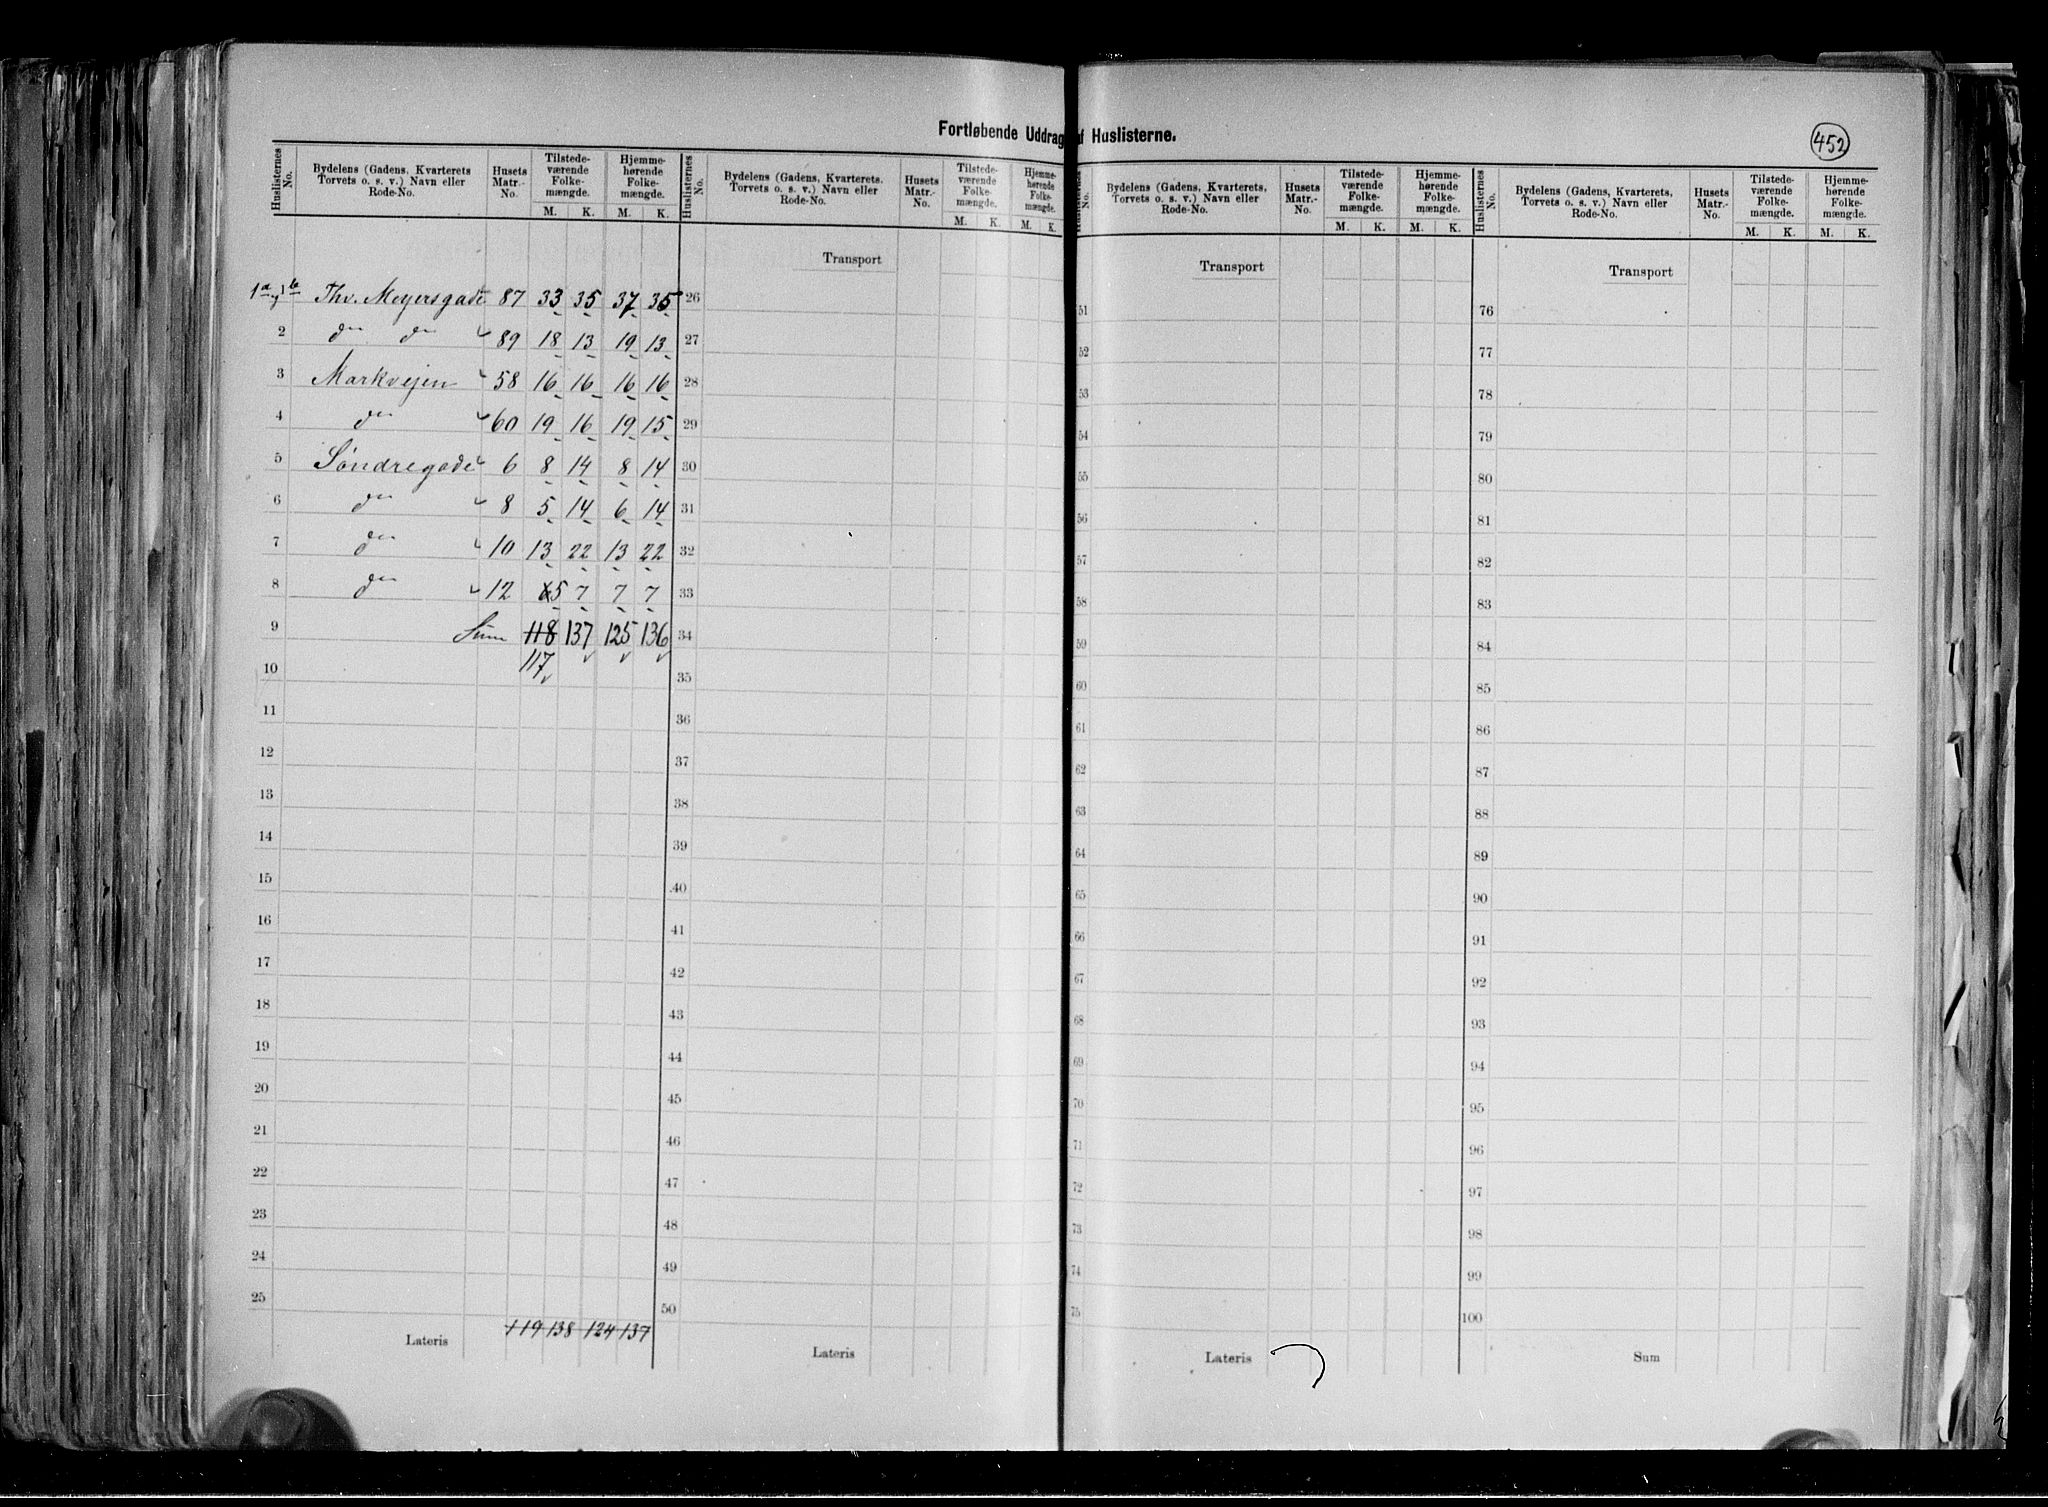 Fortløbende Uddrag af Huslisterne.
452
Huslisternes No. | Bydelens (Gadens, Kvarterets Torvets o. s. v.) Navn eller Rode-No. | Husets Matr.-No. | Tilstedeværende Folkemængde. M. K. | Hjemmehørende Folkemængde. M. K.
1a og 1b Thv. Meyersgade 87 33 35 37 35
2 do do 89 18 13 19 13
3 Markvejen 58 16 16 16 16
4 do 60 19 16 19 15
5 Søndregade 6 8 14 8 14
6 do 8 5 14 6 14
7 do 10 13 22 13 22
8 do 12 5 7 7 7
9 Sum 118 137 125 136
10 117
11
12
13
14
15
16
17
18
19
20
21
22
23
24
25
Lateris 119 138 124 137
Huslisternes No. | Bydelens (Gadens, Kvarterets. Torvets o. s. v.) Navn eller Rode-No. | Husets Matr.-No. | Tilstedeværende Folkemængde. M. K. | Hjemmehørende Folkemængde. M. K.
Transport
26
27
28
29
30
31
32
33
34
35
36
37
38
39
40
41
42
43
44
45
46
47
48
49
50
Lateris
Huslisternes No. | Bydelens (Gadens, Kvarterets, Torvets o. s. v.) Navn eller Rode-No. | Husets Matr.-No. | Tilstedeværende Folkemængde. M. K. | Hjemmehørende Folkemængde. M. K.
Transport
51
52
53
54
55
56
57
58
59
60
61
62
63
64
65
66
67
68
69
70
71
72
73
74
75
Lateris
Huslisternes No. | Bydelens (Gadens, Kvarterets, Torvets o. s. v.) Navn eller Rode-No. | Husets Matr.-No. | Tilstedeværende Folkemængde. M. K. | Hjemmehørende Folkemængde. M. K.
Transport
76
77
78
79
80
81
82
83
84
85
86
87
88
89
90
91
92
93
94
95
96
97
98
99
100
Sum